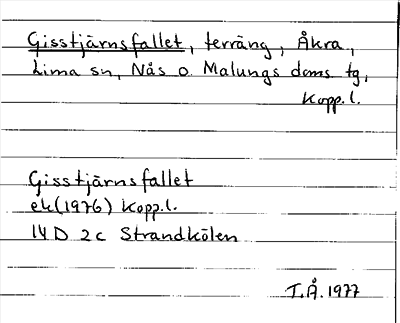 Gisstjärnsfallet, terräng, Åkra,
Lima sn, Nås o. Malungs doms. tg,
Kopp. l.
Gisstjärnsfallet
ek (1976) Kopp. l.
14 D 2c Strandkölen
T.Å. 1977